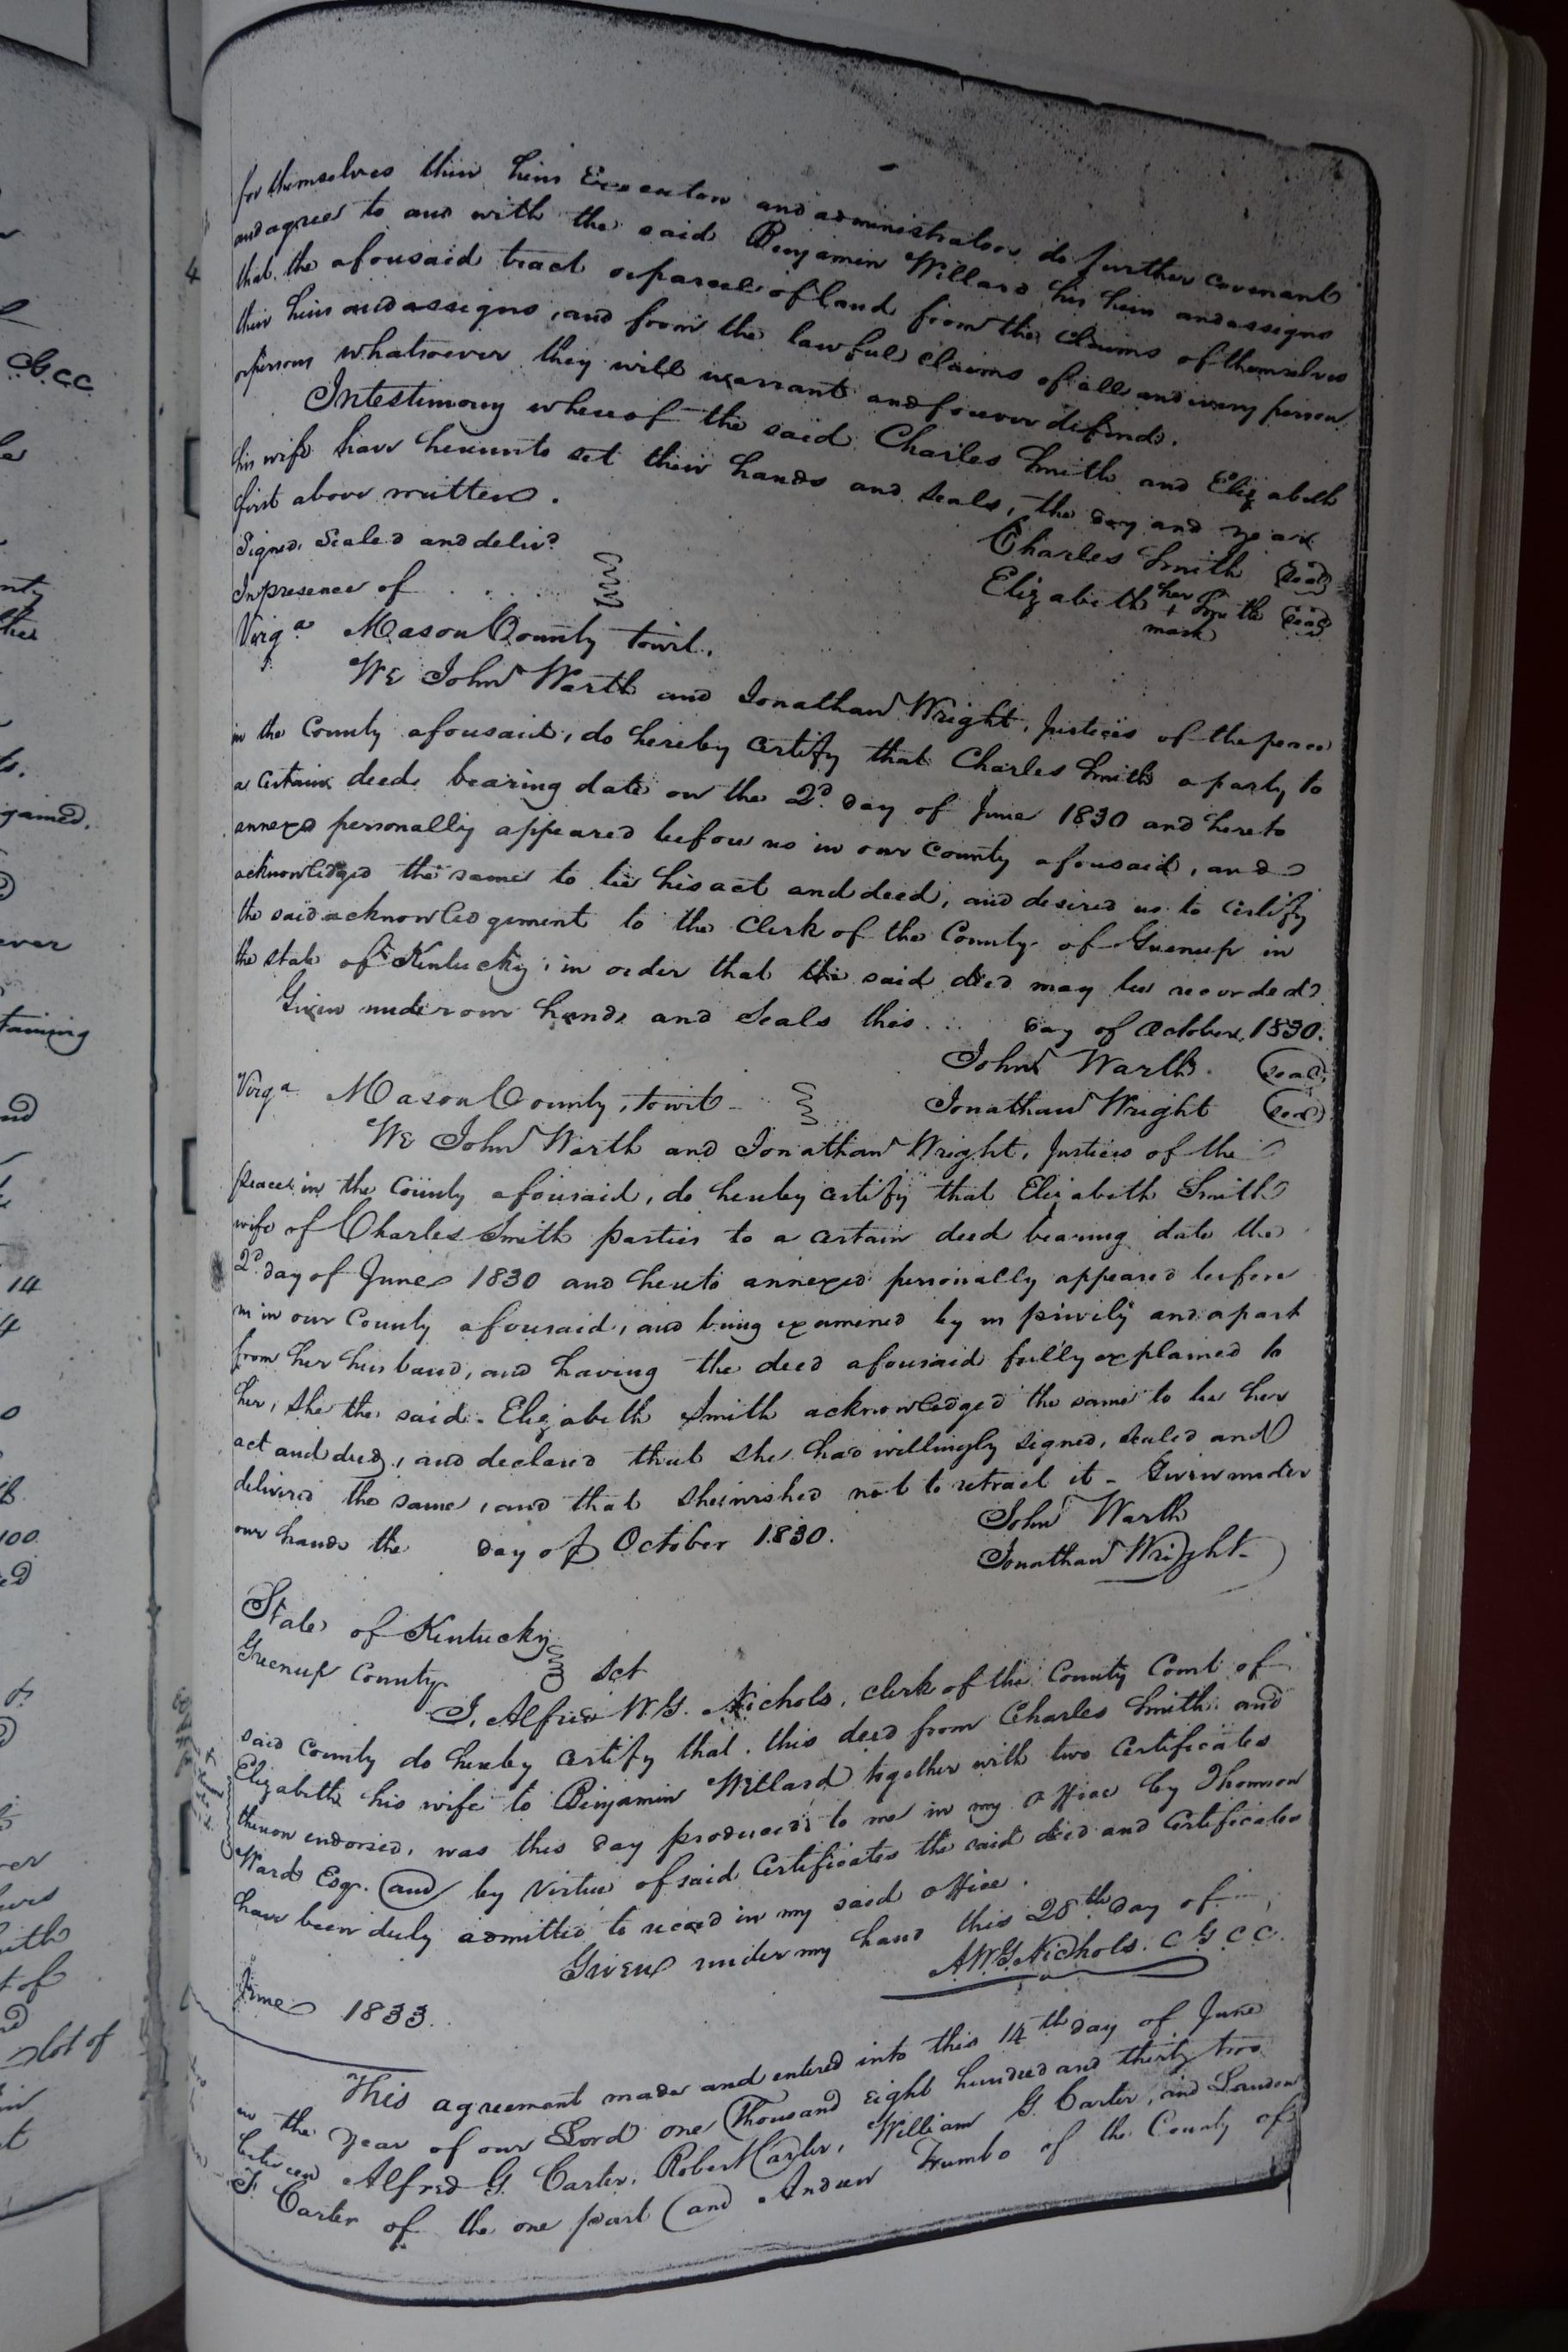 for themselves their heirs Executors and administrators do further covenant
and agree to and with the said Benjamin Willard his heirs and assigns
that the aforesaid tract or parcel of land from the claims of themselves
their heirs and assigns, and from the lawful claims of all and every person
or persons whatsoever they will warrant and forever defend.
In testimony whereof the said Charles Smith and Elizabeth
his wife have hereunto set their hands and seals, the day and year
first above written.
Signed, Sealed and deliv.d
In presence of
Charles Smith (seal)
Elizabeth her + mark Smith (seal)
Virg.a Mason County towit.
We John Warth and Jonathan Wright, Justices of the peace
in the County aforesaid, do hereby certify that Charles Smith a party to
a certain deed bearing date on the 2.d day of June 1830 and hereto
annexed personally appeared before us in our county aforesaid, and
acknowledged the same to be his act and deed, and desired us to certify
the said acknowledgement to the Clerk of the County of Greenup in
the state of Kentucky, in order that the said deed may be recorded.
Given under our hands and Seals this ... day of October, 1830.
John Warth. (seal)
Virg.a Mason County, towit - Jonathan Wright (seal)
We John Warth and Jonathan Wright, Justices of the
peace in the County aforesaid, do hereby certify that Elizabeth Smith
wife of Charles Smith parties to a certain deed bearing date the
2.d day of June 1830 and hereto annexed personally appeared before
us in our County aforesaid, and being examined by us privily and apart
from her husband, and having the deed aforesaid fully explained to
her, she the said Elizabeth Smith acknowledged the same to be her
act and deed, and declared that she had willingly signed, sealed and
delivered the same, and that she wished not to retract it - Given under
our hands the day of October 1830.
John Warth
Jonathan Wright
State of Kentucky
Greenup County Sct
I, Alfred W.G. Nichols, clerk of the County Court of
said County do hereby certify that this deed from Charles Smith and
Elizabeth his wife to Benjamin Willard together with two certificates
thereon endorsed, was this day produced to me in my office by Thomson
Ward Esqr. and by virtue of said certificates the said deed and certificates
have been duly admitted to record in my said office.
Given under my hand this 28th day of
June 1833.
A.W.G. Nichols. C G C C.
This agreement made and entered into this 14th day of June
in the year of our Lord one Thousand eight hundred and thirty two
between Alfred G. Carter, Robert Carter, William G. Carter, and Landon
T. Carter of the one part and Andrew Trumbo of the County of